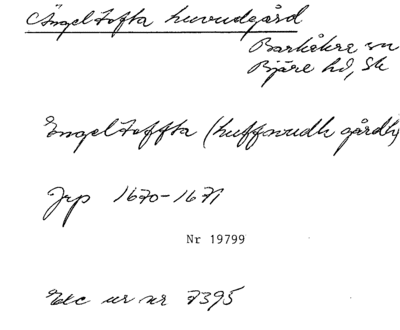 Ängeltofta huvudgård
Barkåkra sn
Bjäre hd, Sk
Engeltoffta (huffwudh gårdh)
Jrp 1670-1671
Nr 19799
Exc ur nr 7395